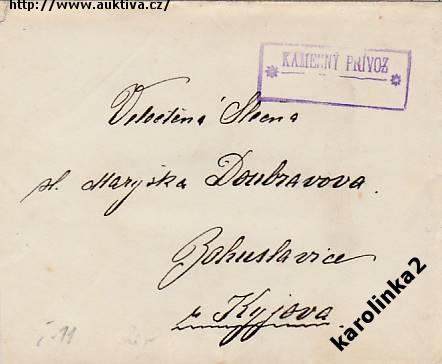 http://www.auktiva.cz/
KAMENNÝ PŘÍVOZ
Veloctěná Slecna
sl. Maryška Doubravova.
Bohuslavice
u Kyjova.
karolinka2